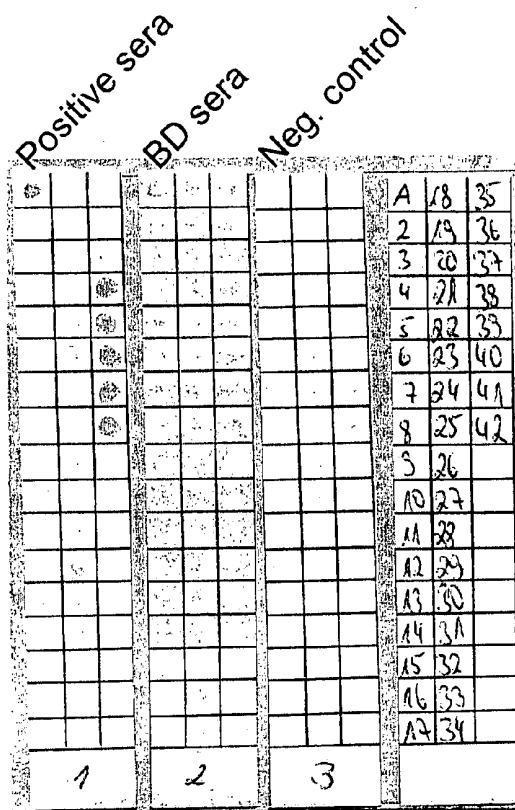 Positive sera
BD sera
Neg. control
A 18 35
2 19 36
3 20 37
4 21 38
5 22 39
6 23 40
7 24 41
8 25 42
9 26
10 27
11 28
12 29
13 30
14 31
15 32
16 33
17 34
1 2 3